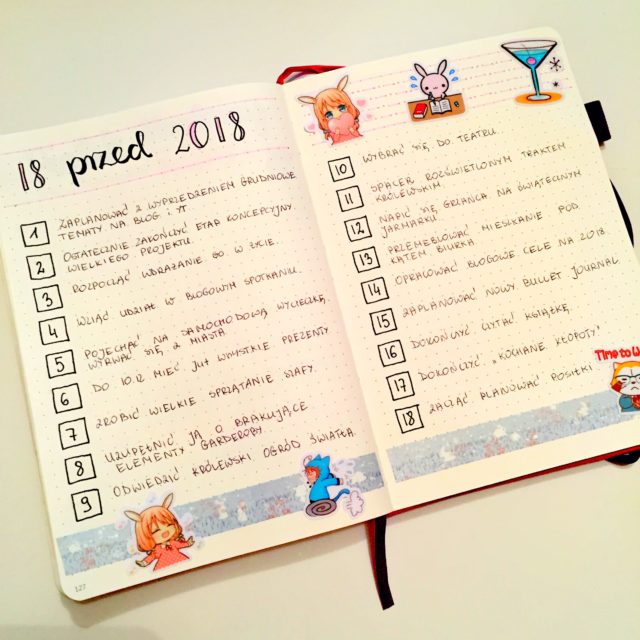 18 przed 2018
1 ZAPLANOWAĆ Z WYPRZEDZENIEM GRUDNIOWE
TEMATY NA BLOG I YT
2 OSTATECZNIE ZAKOŃCZYĆ ETAP KONCEPCYJNY
WIELKIEGO PROJEKTU.
3 ROZPOCZĄĆ WDRAŻANIE GO W ŻYCIE.
4 WZIĄĆ UDZIAŁ W BLOGOWYM SPOTKANIU.
5 POJECHAĆ NA SAMOCHODOWĄ WYCIECZKĘ.
WYRWAĆ SIĘ Z MIASTA
6 DO 10.12 MIEĆ JUŻ WSZYSTKIE PREZENTY
7 ZROBIĆ WIELKIE SPRZĄTANIE SZAFY.
8 UZUPEŁNIĆ JĄ O BRAKUJĄCE
ELEMENTY GARDEROBY
9 ODWIEDZIĆ KRÓLEWSKI OGRÓD ŚWIATŁA.
127
10 WYBRAĆ SIĘ DO TEATRU.
11 SPACER ROZŚWIETLONYM TRAKTEM
KRÓLEWSKIM.
12 NAPIĆ SIĘ GRZAŃCA NA ŚWIĄTECZNYM
JARMARKU
13 PRZEMEBLOWAĆ MIESZKANIE POD
KĄTEM BIURKA
14 OPRACOWAĆ BLOGOWE CELE NA 2018.
15 ZAPLANOWAĆ NOWY BULLET JOURNAL
16 DOKOŃCZYĆ CZYTAĆ KSIĄŻKĘ.
17 DOKOŃCZYĆ „KOCHANE KŁOPOTY"
18 ZACZĄĆ PLANOWAĆ POSIŁKI
Time to